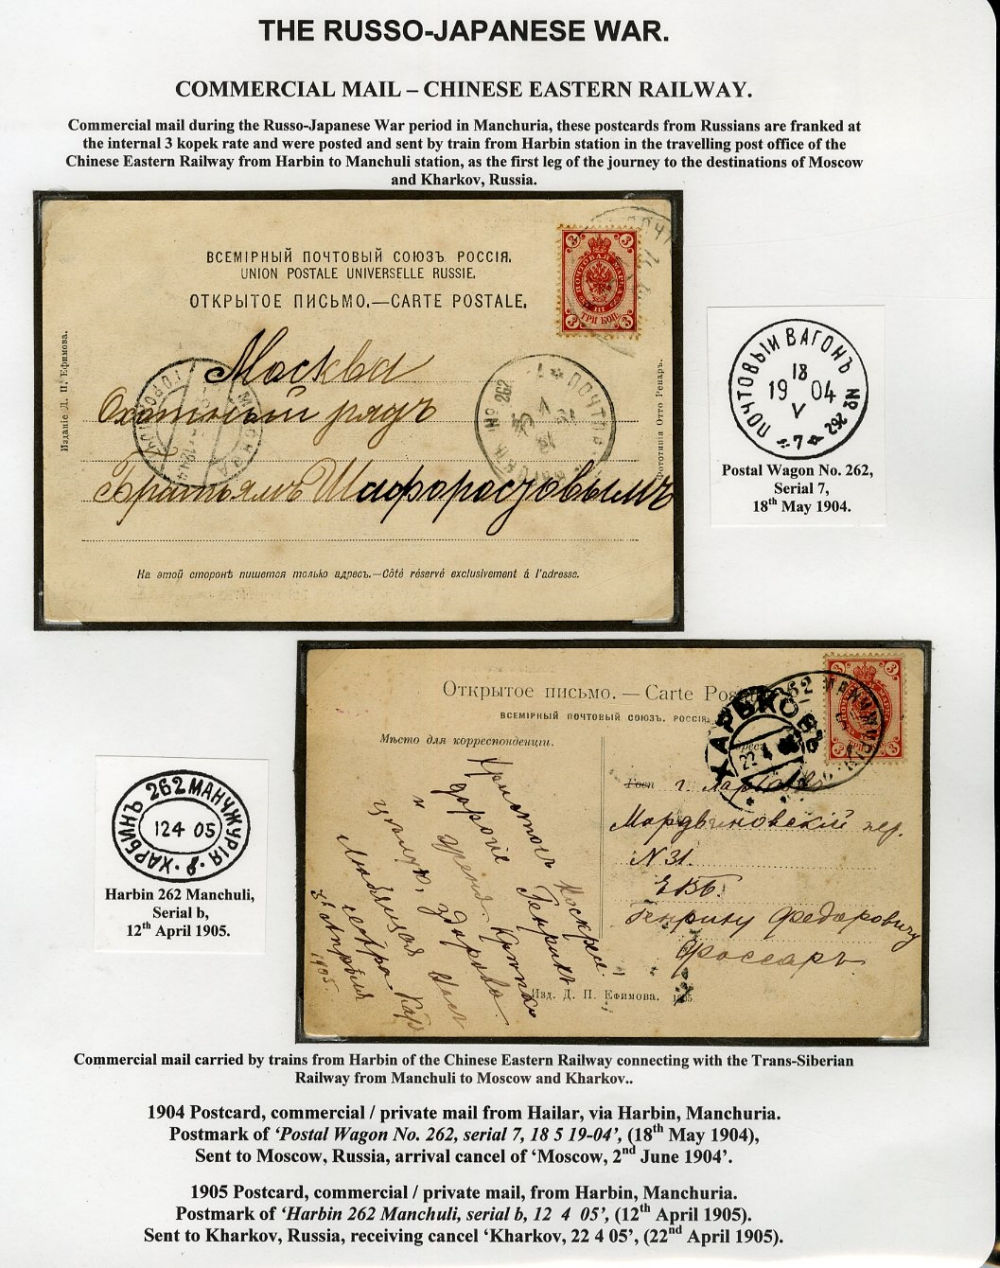 THE RUSSO-JAPANESE WAR.
COMMERCIAL MAIL – CHINESE EASTERN RAILWAY.
Commercial mail during the Russo-Japanese War period in Manchuria, these postcards from Russians are franked at
the internal 3 kopek rate and were posted and sent by train from Harbin station in the travelling post office of the
Chinese Eastern Railway from Harbin to Manchuli station, as the first leg of the journey to the destinations of Moscow
and Kharkov, Russia.
ВСЕМІРНЫЙ ПОЧТОВЫЙ СОЮЗЪ РОССІЯ.
UNION POSTALE UNIVERSELLE RUSSIE.
ОТКРЫТОЕ ПИСЬМО.—CARTE POSTALE.
3 3
ПОЧТОВАЯ МАРКА
ТРИ КОП.
3 3
Изданіе Д. П. Ефимова.
Фототипія Отто Ренаръ.
Москва
Охотный рядъ
Братьямъ
MOSCKVA
№ 262
На этой сторонѣ пишется только адресъ.—Côté réservé exclusivement á l'adresse.
ПОЧТОВЫЙ ВАГОНЪ № 262
18
19 04
V
7
Postal Wagon No. 262,
Serial 7,
18th May 1904.
Открытое письмо. — Carte Pos
ВСЕМІРНЫЙ ПОЧТОВЫЙ СОЮЗЪ. РОССІЯ.
Мѣсто для корреспонденціи.
ХАРЬКОВЪ
22 4
262
Мардвиновскій пер.
N 31.
Генриху Федоровичу
Фоссаръ
Христосъ Воскресе!
дорогіе Генрихъ
и
цѣлую,
Любящая
сестра
1905.
Изд. Д. П. Ефимова.
ХАРБИНЪ 262 МАНЧЖУРІЯ
124 05
Harbin 262 Manchuli,
Serial b,
12th April 1905.
Commercial mail carried by trains from Harbin of the Chinese Eastern Railway connecting with the Trans-Siberian
Railway from Manchuli to Moscow and Kharkov..
1904 Postcard, commercial / private mail from Hailar, via Harbin, Manchuria.
Postmark of ‘Postal Wagon No. 262, serial 7, 18 5 19-04’, (18th May 1904),
Sent to Moscow, Russia, arrival cancel of ‘Moscow, 2nd June 1904’.
1905 Postcard, commercial / private mail, from Harbin, Manchuria.
Postmark of ‘Harbin 262 Manchuli, serial b, 12 4 05’, (12th April 1905).
Sent to Kharkov, Russia, receiving cancel ‘Kharkov, 22 4 05’, (22nd April 1905).